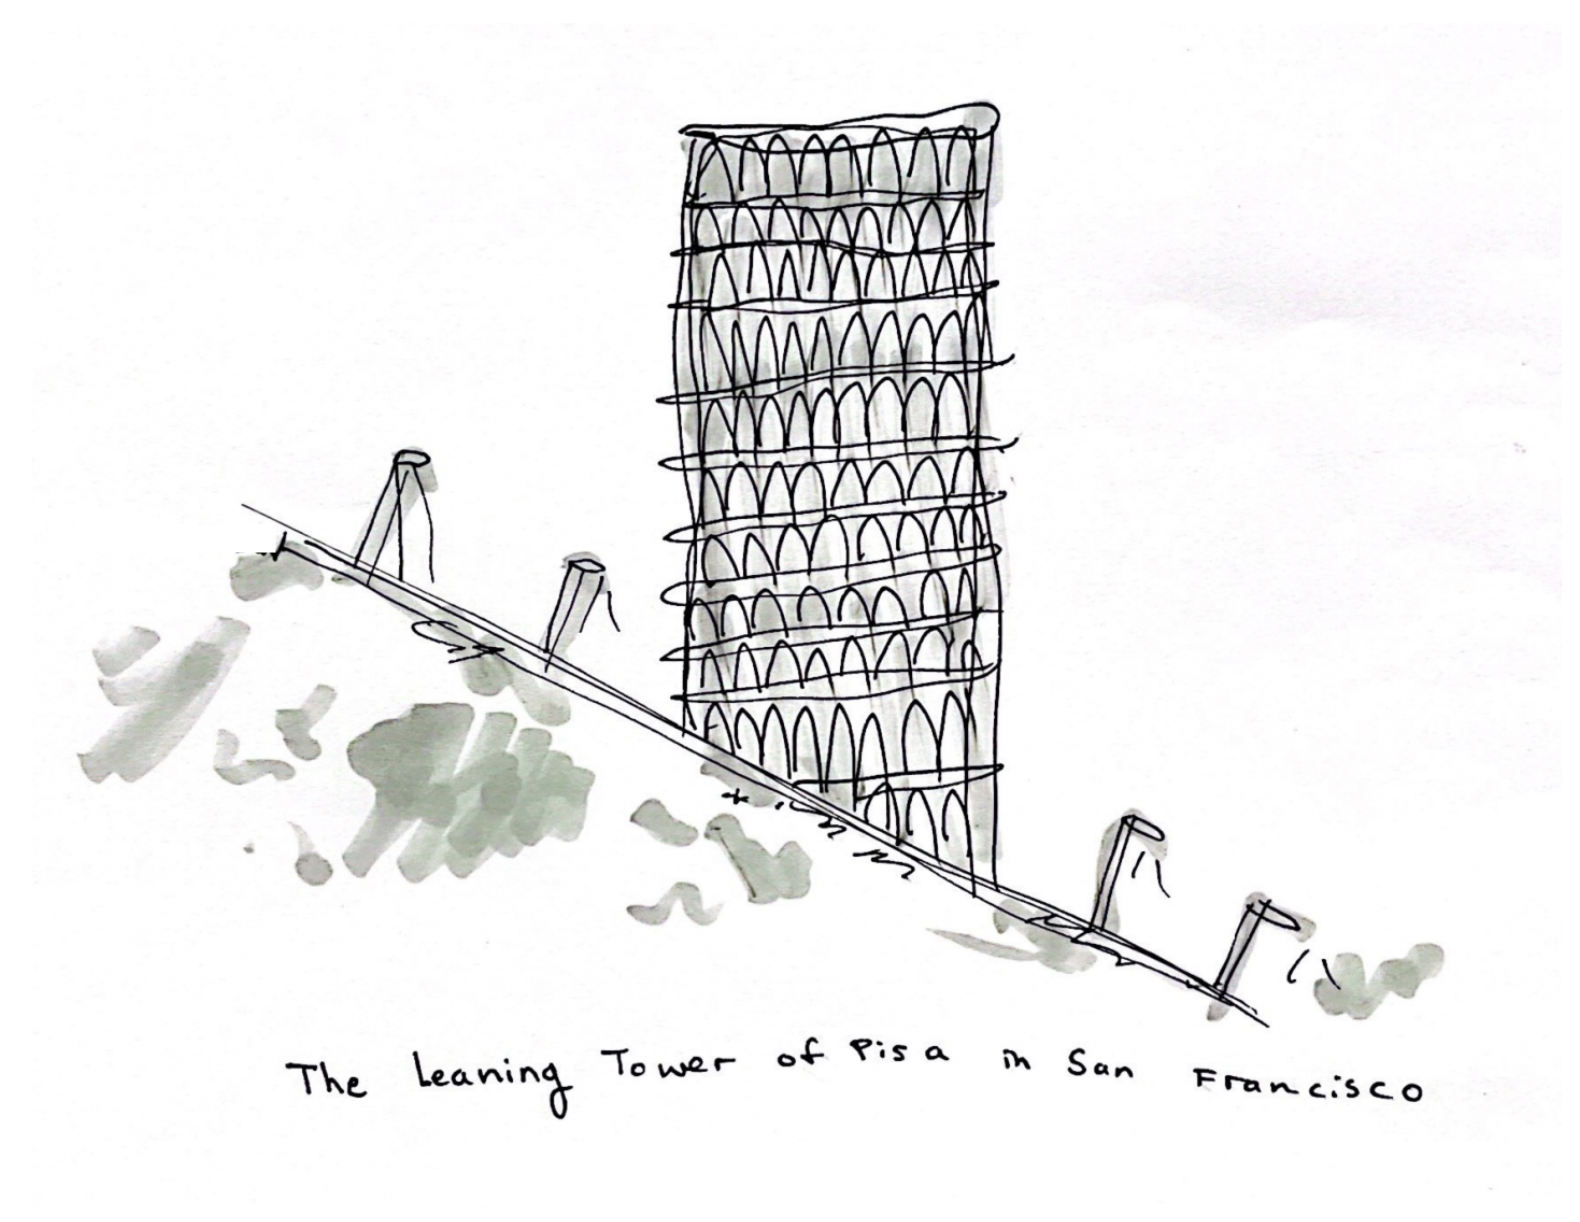 The Leaning Tower of Pisa in San Francisco